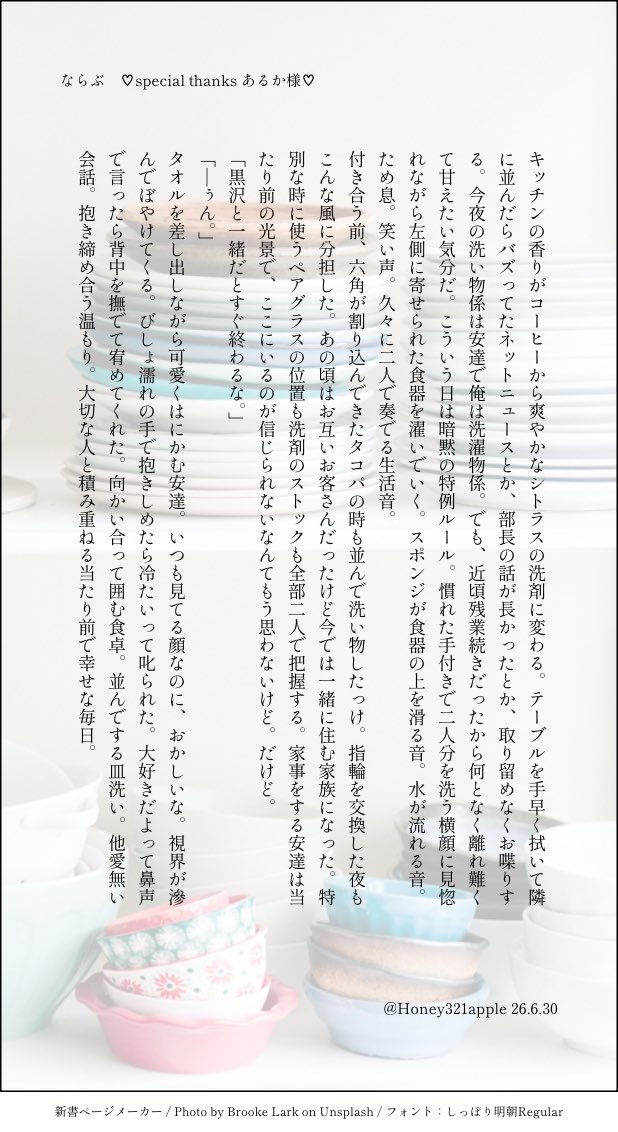 ならぶ　♡special thanks あるか様♡
キッチンの香りがコーヒーから爽やかなシトラスの洗剤に変わる。テーブルを手早く拭いて隣
に並んだらバズってたネットニュースとか、部長の話が長かったとか、取り留めなくお喋りす
る。今夜の洗い物係は安達で俺は洗濯物係。でも、近頃残業続きだったから何となく離れ難く
て甘えたい気分だ。こういう日は暗黙の特例ルール。慣れた手付きで二人分を洗う横顔に見惚
れながら左側に寄せられた食器を濯いでいく。スポンジが食器の上を滑る音。水が流れる音。
ため息。笑い声。久々に二人で奏でる生活音。
付き合う前、六角が割り込んできたタコパの時も並んで洗い物したっけ。指輪を交換した夜も
こんな風に分担した。あの頃はお互いお客さんだったけど今では一緒に住む家族になった。特
別な時に使うペアグラスの位置も洗剤のストックも全部二人で把握する。家事をする安達は当
たり前の光景で、ここにいるのが信じられないなんてもう思わないけど。だけど。
「黒沢と一緒だとすぐ終わるな。」
「―ぅん。」
タオルを差し出しながら可愛くはにかむ安達。いつも見てる顔なのに、おかしいな。視界が滲
んでぼやけてくる。びしょ濡れの手で抱きしめたら冷たいって叱られた。大好きだよって鼻声
で言ったら背中を撫でて宥めてくれた。向かい合って囲む食卓。並んでする皿洗い。他愛無い
会話。抱き締め合う温もり。大切な人と積み重ねる当たり前で幸せな毎日。
@Honey321apple 26.6.30
新書ページメーカー / Photo by Brooke Lark on Unsplash / フォント：しっぽり明朝Regular